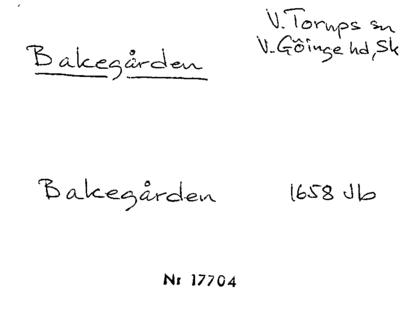 V. Torups sn
V. Göinge hd, Sk
Bakegården
Bakegården 1658 Jb
Nr 17704